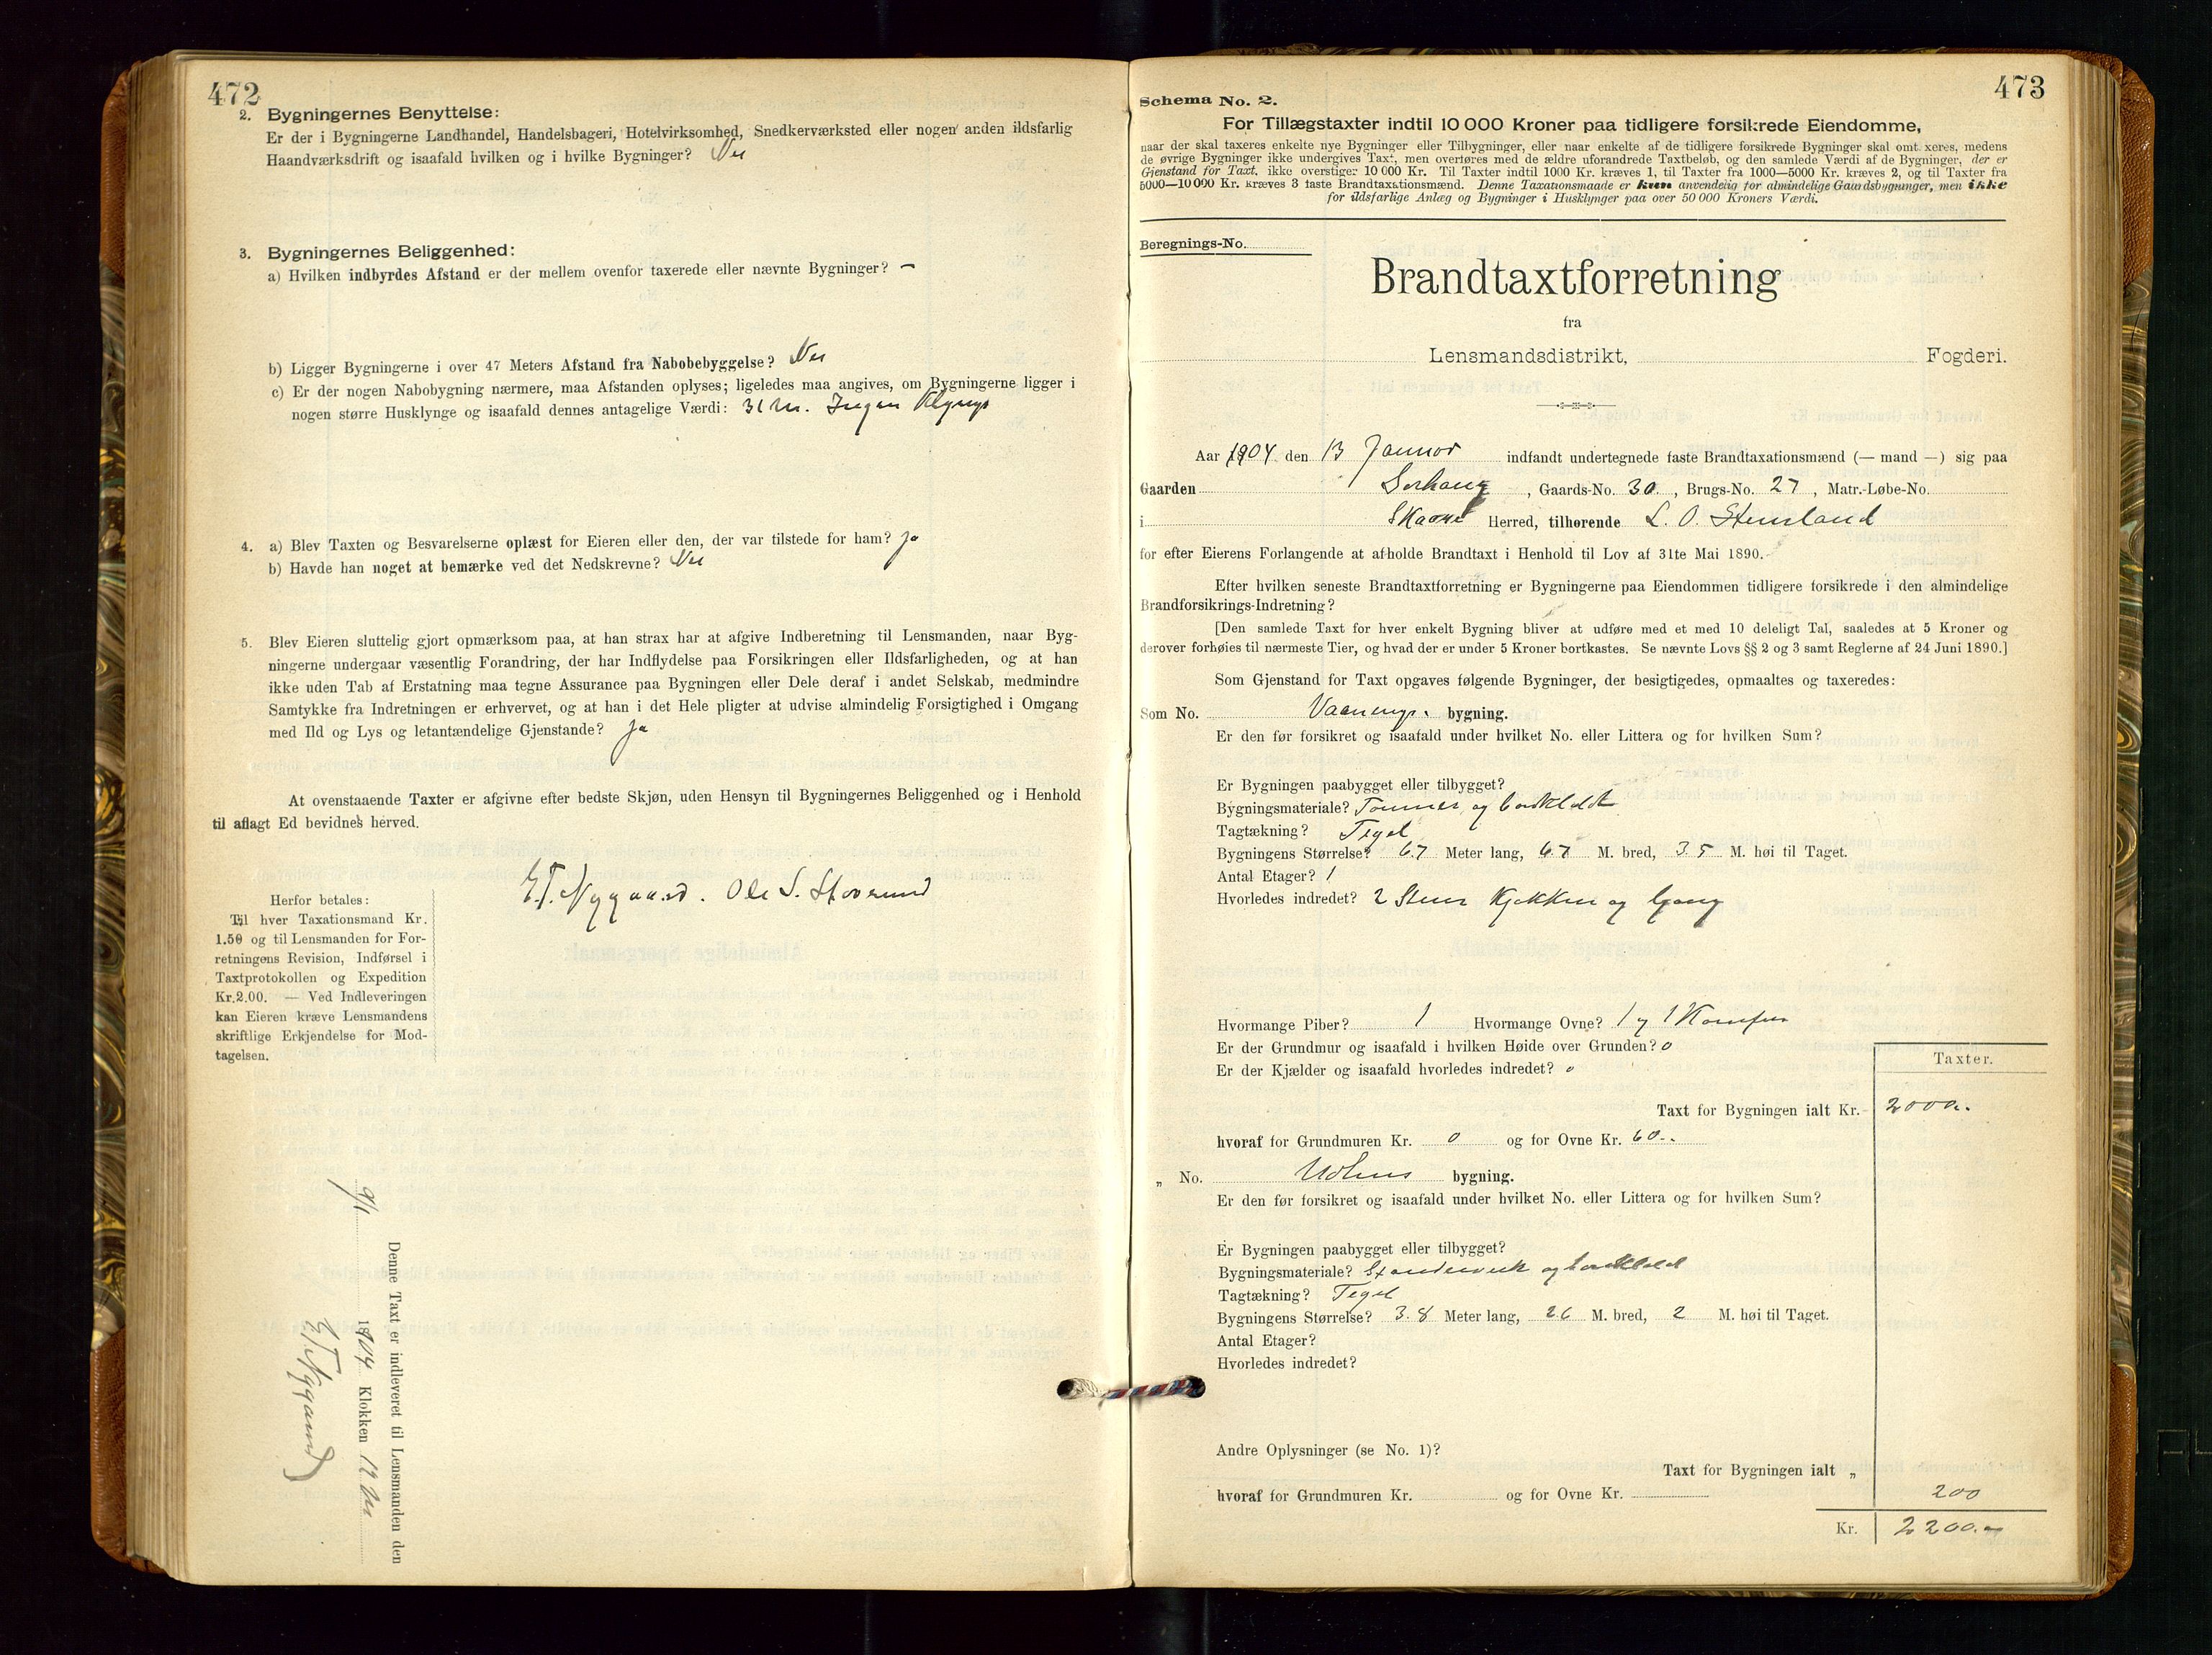 472
2. Bygningernes Benyttelse:
Er der i Bygningerne Landhandel, Handelsbageri, Hotelvirksomhed, Snedkerværksted eller nogen anden ildsfarlig
Haandværksdrift og isaafald hvilken og i hvilke Bygninger? Nei
3. Bygningernes Beliggenhed:
a) Hvilken indbyrdes Afstand er der mellem ovenfor taxerede eller nævnte Bygninger? —
b) Ligger Bygningerne i over 47 Meters Afstand fra Nabobebyggelse? Nei
c) Er der nogen Nabobygning nærmere, maa Afstanden oplyses; ligeledes maa angives, om Bygningerne ligger i
nogen større Husklynge og isaafald dennes antagelige Værdi: 31 m. Ingen Klynge
4. a) Blev Taxten og Besvarelserne oplæst for Eieren eller den, der var tilstede for ham? Ja
b) Havde han noget at bemærke ved det Nedskrevne? Nei
5. Blev Eieren sluttelig gjort opmærksom paa, at han strax har at afgive Indberetning til Lensmanden, naar Byg-
ningerne undergaar væsentlig Forandring, der har Indflydelse paa Forsikringen eller Ildsfarligheden, og at han
ikke uden Tab af Erstatning maa tegne Assurance paa Bygningen eller Dele deraf i andet Selskab, medmindre
Samtykke fra Indretningen er erhvervet, og at han i det Hele pligter at udvise almindelig Forsigtighed i Omgang
med Ild og Lys og letantændelige Gjenstande? Ja
At ovenstaaende Taxter er afgivne efter bedste Skjøn, uden Hensyn til Bygningernes Beliggenhed og i Henhold
til aflagt Ed bevidnes herved.
E. T. Nygaard. Ole S.
Herfor betales:
Til hver Taxationsmand Kr.
1.50 og til Lensmanden for For-
retningens Revision, Indførsel i
Taxtprotokollen og Expedition
Kr. 2.00. — Ved Indleveringen
kan Eieren kræve Lensmandens
skriftlige Erkjendelse for Mod-
tagelsen.
Denne Taxt er indleveret til Lensmanden den
1904 Klokken 12
E T Nygaard
473
Schema No. 2.
For Tillægstaxter indtil 10 000 Kroner paa tidligere forsikrede Eiendomme,
naar der skal taxeres enkelte nye Bygninger eller Tilbygninger, eller naar enkelte af de tidligere forsikrede Bygninger skal omtaxeres, medens
de øvrige Bygninger ikke undergives Taxt, men overføres med de ældre uforandrede Taxtbeløb, og den samlede Værdi af de Bygninger, der er
Gjenstand for Taxt, ikke overstiger 10 000 Kr. Til Taxter indtil 1000 Kr. kræves 1, til Taxter fra 1000—5000 Kr. kræves 2, og til Taxter fra
5000—10 000 Kr. kræves 3 faste Brandtaxationsmænd. Denne Taxationsmaade er kun anvendelig for almindelige Gaardsbygninger, men ikke
for ildsfarlige Anlæg og Bygninger i Husklynger paa over 50 000 Kroners Værdi.
Beregnings-No.
Brandtaxtforretning
fra
Lensmandsdistrikt, Fogderi.
Aar 1904 den 13 Januar indfandt undertegnede faste Brandtaxationsmænd (— mand —) sig paa
Gaarden Sørhaug, Gaards-No. 30, Brugs-No. 27, Matr.-Løbe-No.
i Skaare Herred, tilhørende L. O. Stensland
for efter Eierens Forlangende at afholde Brandtaxt i Henhold til Lov af 31te Mai 1890.
Efter hvilken seneste Brandtaxtforretning er Bygningerne paa Eiendommen tidligere forsikrede i den almindelige
Brandforsikrings-Indretning?
[Den samlede Taxt for hver enkelt Bygning bliver at udføre med et med 10 deleligt Tal, saaledes at 5 Kroner og
derover forhøies til nærmeste Tier, og hvad der er under 5 Kroner bortkastes. Se nævnte Lovs §§ 2 og 3 samt Reglerne af 24 Juni 1890.]
Som Gjenstand for Taxt opgaves følgende Bygninger, der besigtigedes, opmaaltes og taxeredes:
Som No. Vaanings. bygning.
Er den før forsikret og isaafald under hvilket No. eller Littera og for hvilken Sum?
Er Bygningen paabygget eller tilbygget?
Bygningsmateriale? Tømmer og bordklædt
Tagtækning? Tegel
Bygningens Størrelse? 6.7 Meter lang, 6.7 M. bred, 3.5 M. høi til Taget.
Antal Etager? 1
Hvorledes indredet? 2 Stuer Kjøkken og Gang
Hvormange Piber? 1 Hvormange Ovne? 1 og 1 Komfur
Er der Grundmur og isaafald i hvilken Høide over Grunden? 0
Er der Kjælder og isaafald hvorledes indredet? 0
Taxter.
Taxt for Bygningen ialt Kr. 2000.-
hvoraf for Grundmuren Kr. 0 og for Ovne Kr. 60.-
„ No. Udhus bygning.
Er den før forsikret og isaafald under hvilket No. eller Littera og for hvilken Sum?
Er Bygningen paabygget eller tilbygget?
Bygningsmateriale? Standerverk og bordklædt
Tagtækning? Tegel
Bygningens Størrelse? 3.8 Meter lang, 2.6 M. bred, 2 M. høi til Taget.
Antal Etager?
Hvorledes indredet?
Andre Oplysninger (se No. 1)?
Taxt for Bygningen ialt „
hvoraf for Grundmuren Kr. og for Ovne Kr. 200
Kr. 2200.-